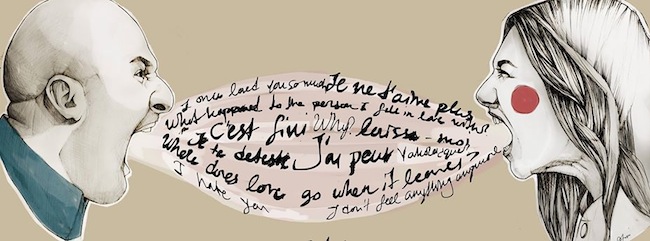 I once loved you so much Je ne t'aime plus
What happened to the person I fell in love with?
Je C'est fini Why? laisse-moi
Je te déteste J'ai peur
Where does love go when it leaves?
I hate you I don't feel anything anymore